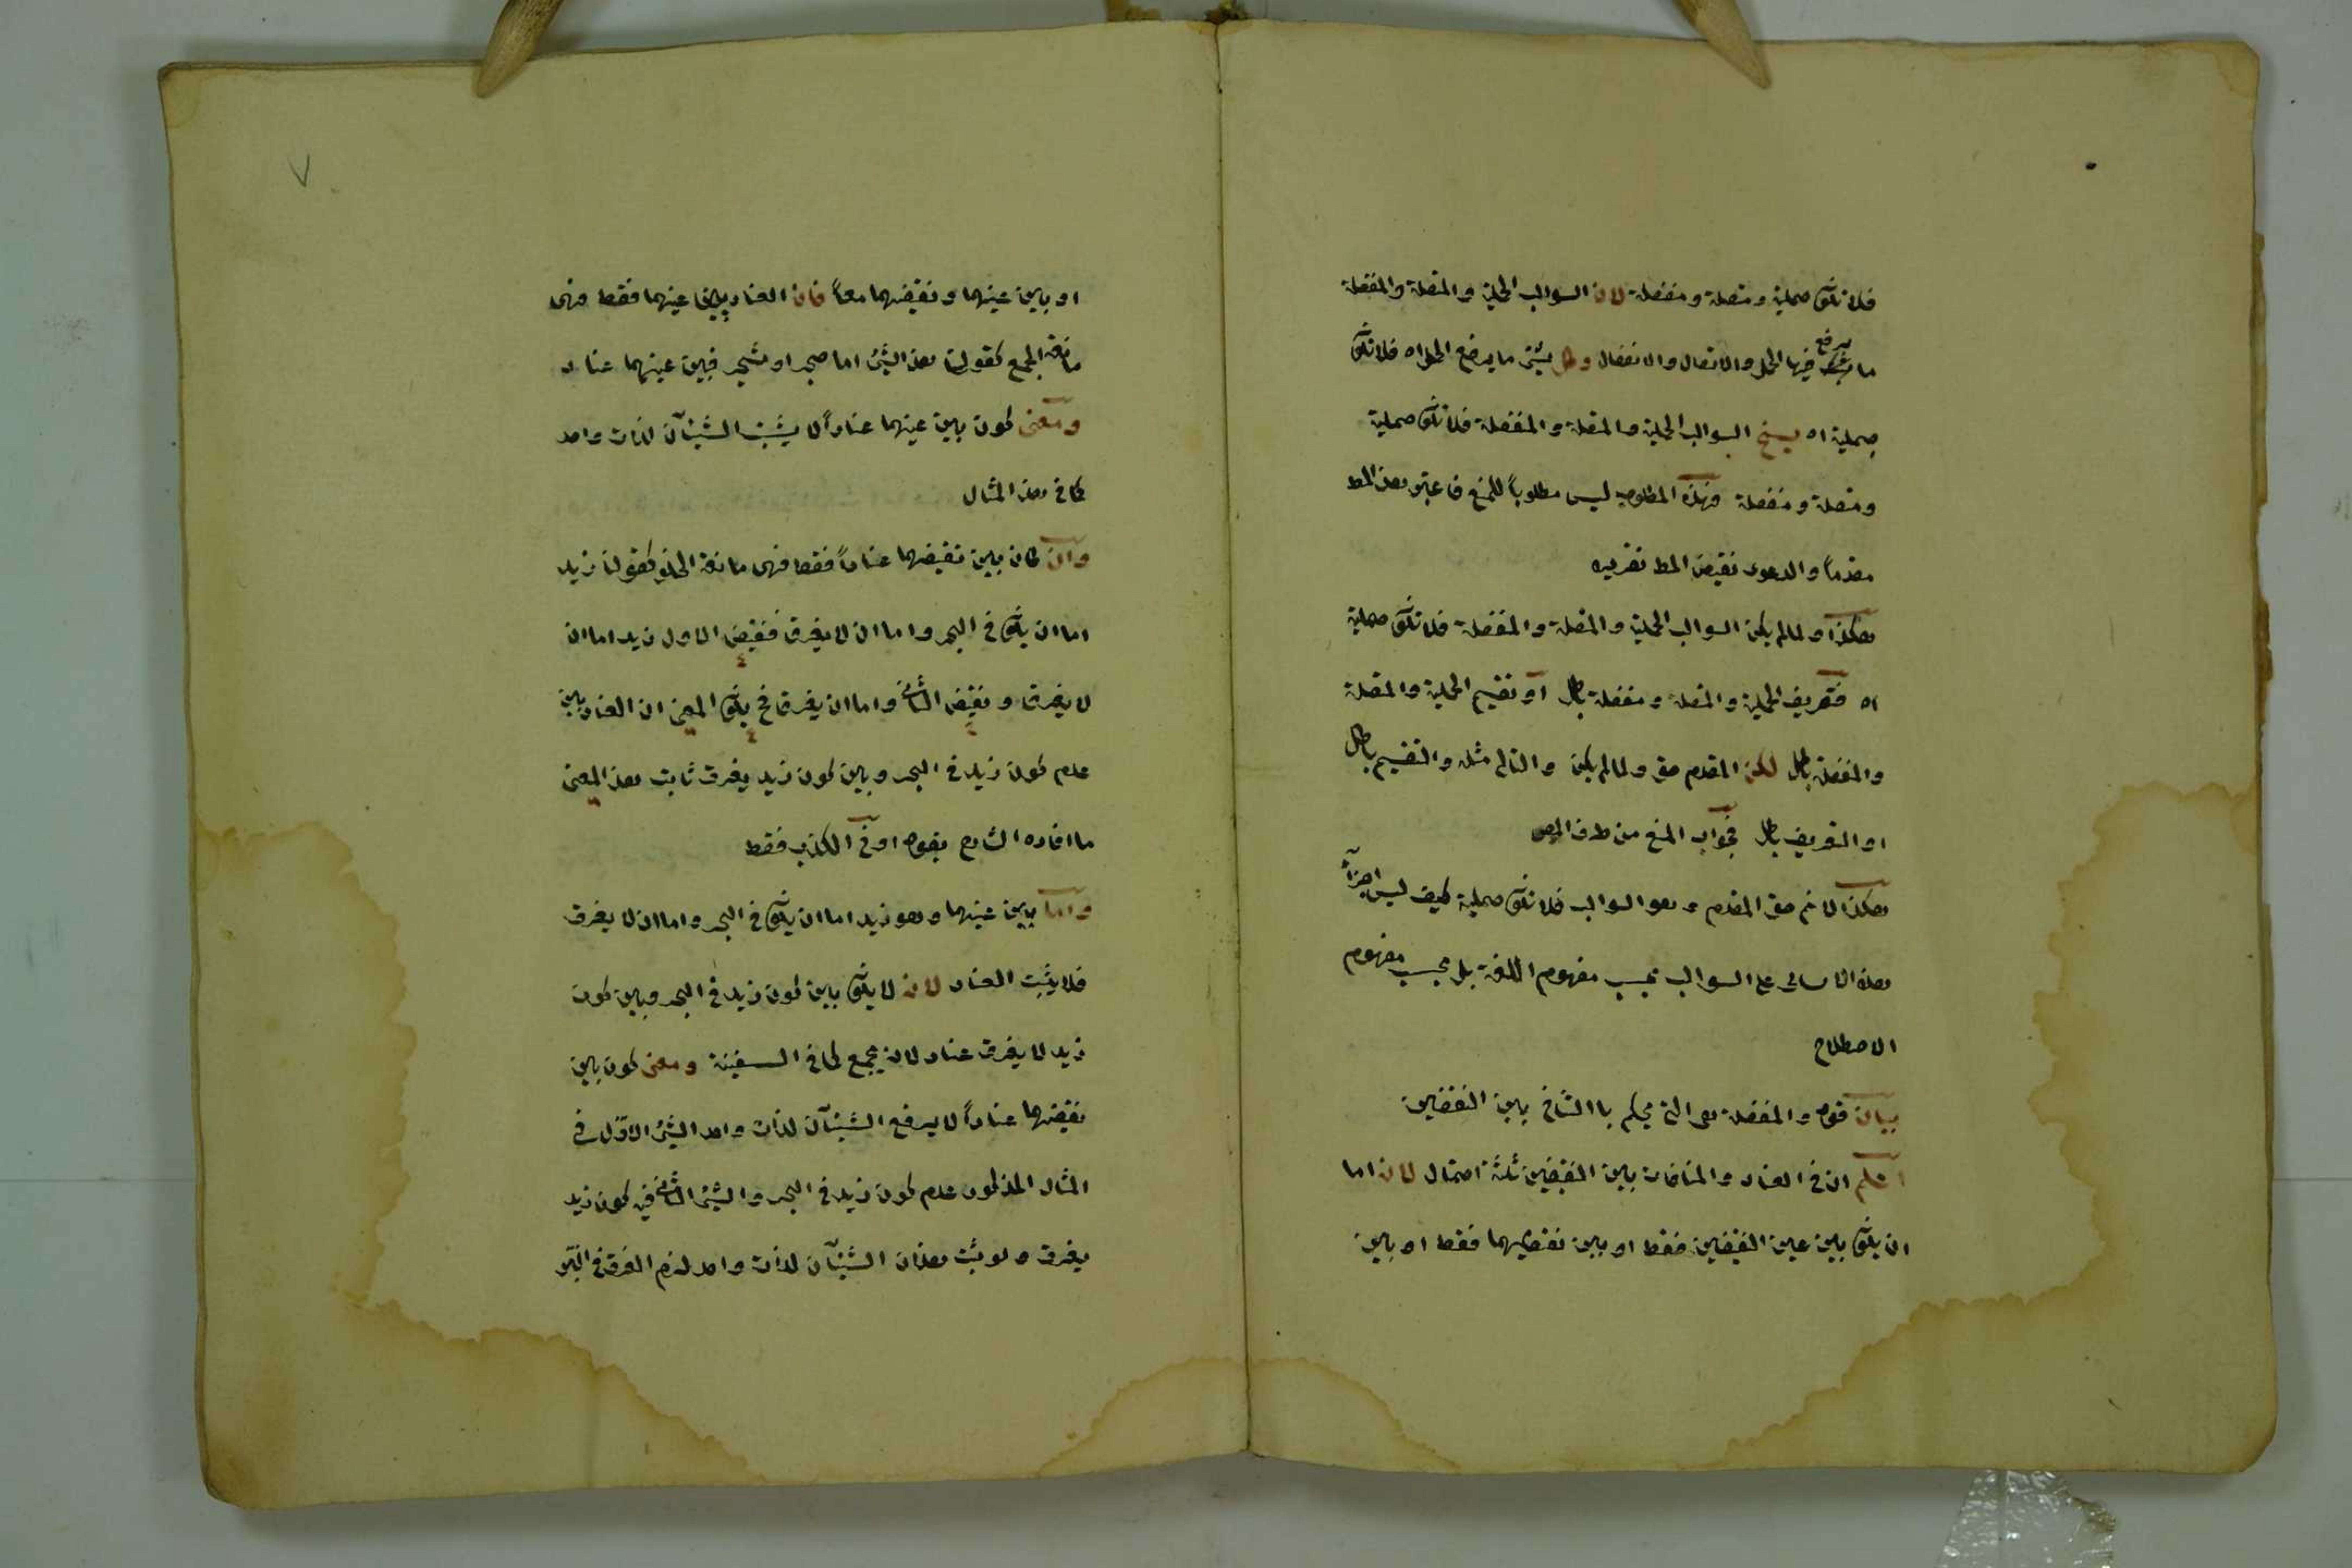 فلا تكون حملية ومتصلة ومنفصلة لان السوالب الحملية والمتصلة والمنفصلة
ما يرفع فيها الحمل والاتصال والانفصال وكل شئ ما يرفع الحمل اه فلا تكون
حملية اه ينتج السوالب الحملية والمتصلة والمنفصلة فلا تكون حملية
ومتصلة ومنفصلة وهذه المطلوب ليس مطلوباً للمنع فاعتبر هذا المط
مقدماً والدعوى نقيض المط تقريره
هكذا ولما لم يكن السوالب الحملية والمتصلة والمنفصلة فلا تكون حملية
اه فتعريف الحملية والمتصلة ومنفصلة باطل او تقسيم الحملية والمتصلة
والمنفصلة باطل لكن المقدم حق ولما لم يكن والتالى مثله والتقسيم باطل
او التعريف باطل فجواب المنع من طرف المص
هكذا لا نم حق المقدم وهو السوالب فلا تكون حملية كيف ليس اجزاء
هذه الاسامى على السوالب بحسب مفهوم اللغة بل بحسب مفهوم
الاصطلاح
بيان قوله والمنفصلة هى التى يحكم باالتنافى بين النقضين
اعلم ان فى العناد والمنافات بين النقيضين ثلثة احتمال لان اما
ان يكون بين عين النقيضين فقط او بين نقضيهما فقط او بين
٧
او بين عينهما ونقيضهما معاً فان العناد بين عينهما فقط فهى
مانعة الجمع كقولنا هذا الشئ اما حجر او شجر فبين عينهما عناد
ومعنى كون بين عينهما عناداً لا يثبت الشيئان لذات واحد
كما فى هذا المثال
وان كان بين نقيضهما عناداً فقط فهى مانعة الخلو كقولنا زيد
اما ان يكون فى البحر واما ان لا يغرق فنقيض الاول زيد اما ان
لا يغرق ونقيض الثانى واما ان يغرق فح يكون المعنى ان العناد بين
عدم كون زيد فى البحر وبين كون زيد يغرق ثابت هذا المعنى
ما افاده الشارح بقوله او فى الكذب فقط
واما بين عينهما وهو زيد اما ان يكون فى البحر واما ان لا يغرق
فلا يثبت العناد لان لا يكون بين كون زيد فى البحر وبين كون
زيد لا يغرق عناد لان يجمع كما فى السفينة ومعنى كون بين
نقيضهما عناداً لا يرفع الشيئان لذات واحد الشئ الاول فى
المثال المذكور عدم كون زيد فى البحر والشئ الثانى فيه كون زيد
يغرق ولو يثبت هذان الشيئان لذات واحد لزم الغرق فى البر